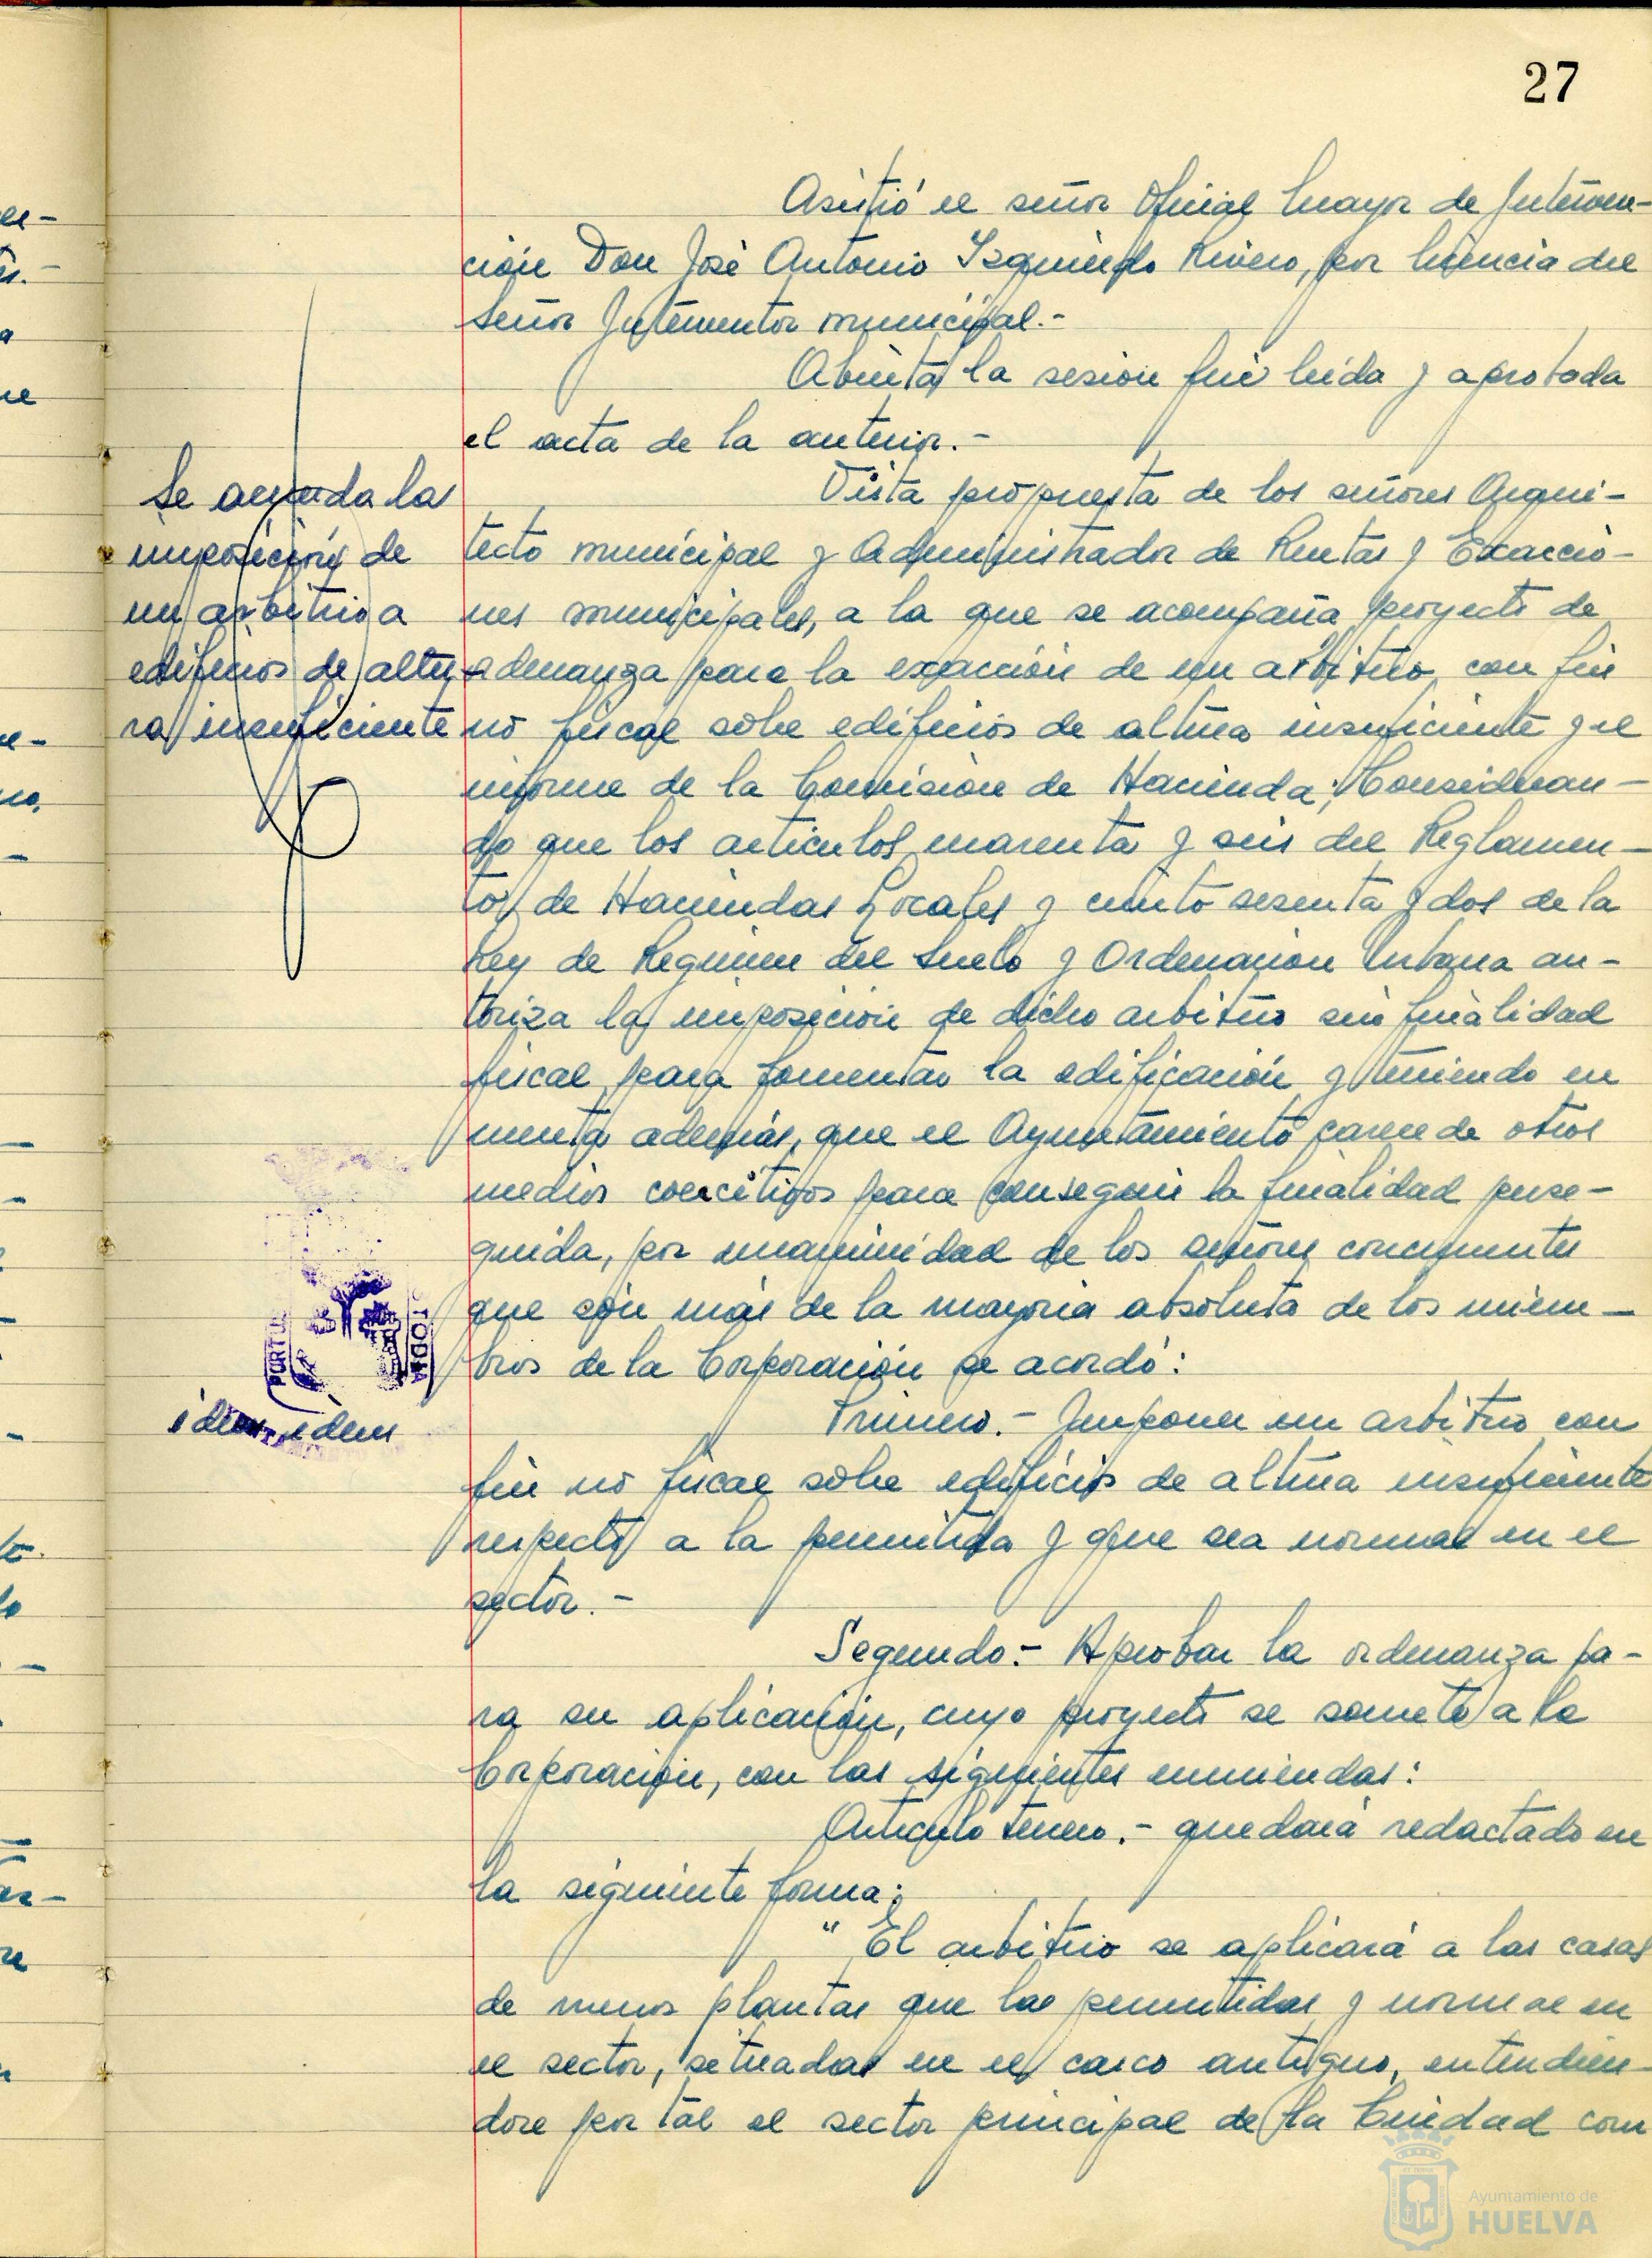 27
Asistió el señor Oficial Mayor de Interven-
ción Don José Antonio Izquierdo Rivero, por licencia del
Señor Interventor municipal.-
Abierta la sesión fué leída y aprobada
el acta de la anterior.-
Se acuerda la
imposición de
un arbitrio a
edificios de altu-
ra insuficiente
Vista propuesta de los señores Arqui-
tecto municipal y Administrador de Rentas y Exaccio-
nes municipales, a la que se acompaña proyecto de
ordenanza para la exacción de un arbitrio con fin
no fiscal sobre edificios de altura insuficiente y el
informe de la Comisión de Hacienda; Consideran-
do que los artículos cuarenta y seis del Reglamen-
to de Haciendas Locales y ciento sesenta y dos de la
Ley de Regimen del Suelo y Ordenación Urbana au-
toriza la imposición de dicho arbitrio sin finalidad
fiscal para fomentar la edificación y teniendo en
cuenta además, que el Ayuntamiento carece de otros
medios coercitivos para conseguir la finalidad perse-
guida, por unanimidad de los señores concurrentes
que són más de la mayoria absoluta de los miem-
bros de la Corporación se acordó:
idem idem
Primero.- Imponer un arbitrio con
fin no fiscal sobre edificios de altura insuficiente
respecto a la permitida y que sea normal en el
sector.-
Segundo.- Aprobar la ordenanza pa-
ra su aplicación, cuyo proyecto se somete a la
Corporación, con las siguientes enmiendas:
Artículo tercero.- quedará redactado en
la siguiente forma:
"El arbitrio se aplicará a las casas
de menos plantas que las permitidas y normal en
el sector, situadas en el casco antiguo, entendién-
dose por tal el sector principal de la Ciudad com
Ayuntamiento de
HUELVA